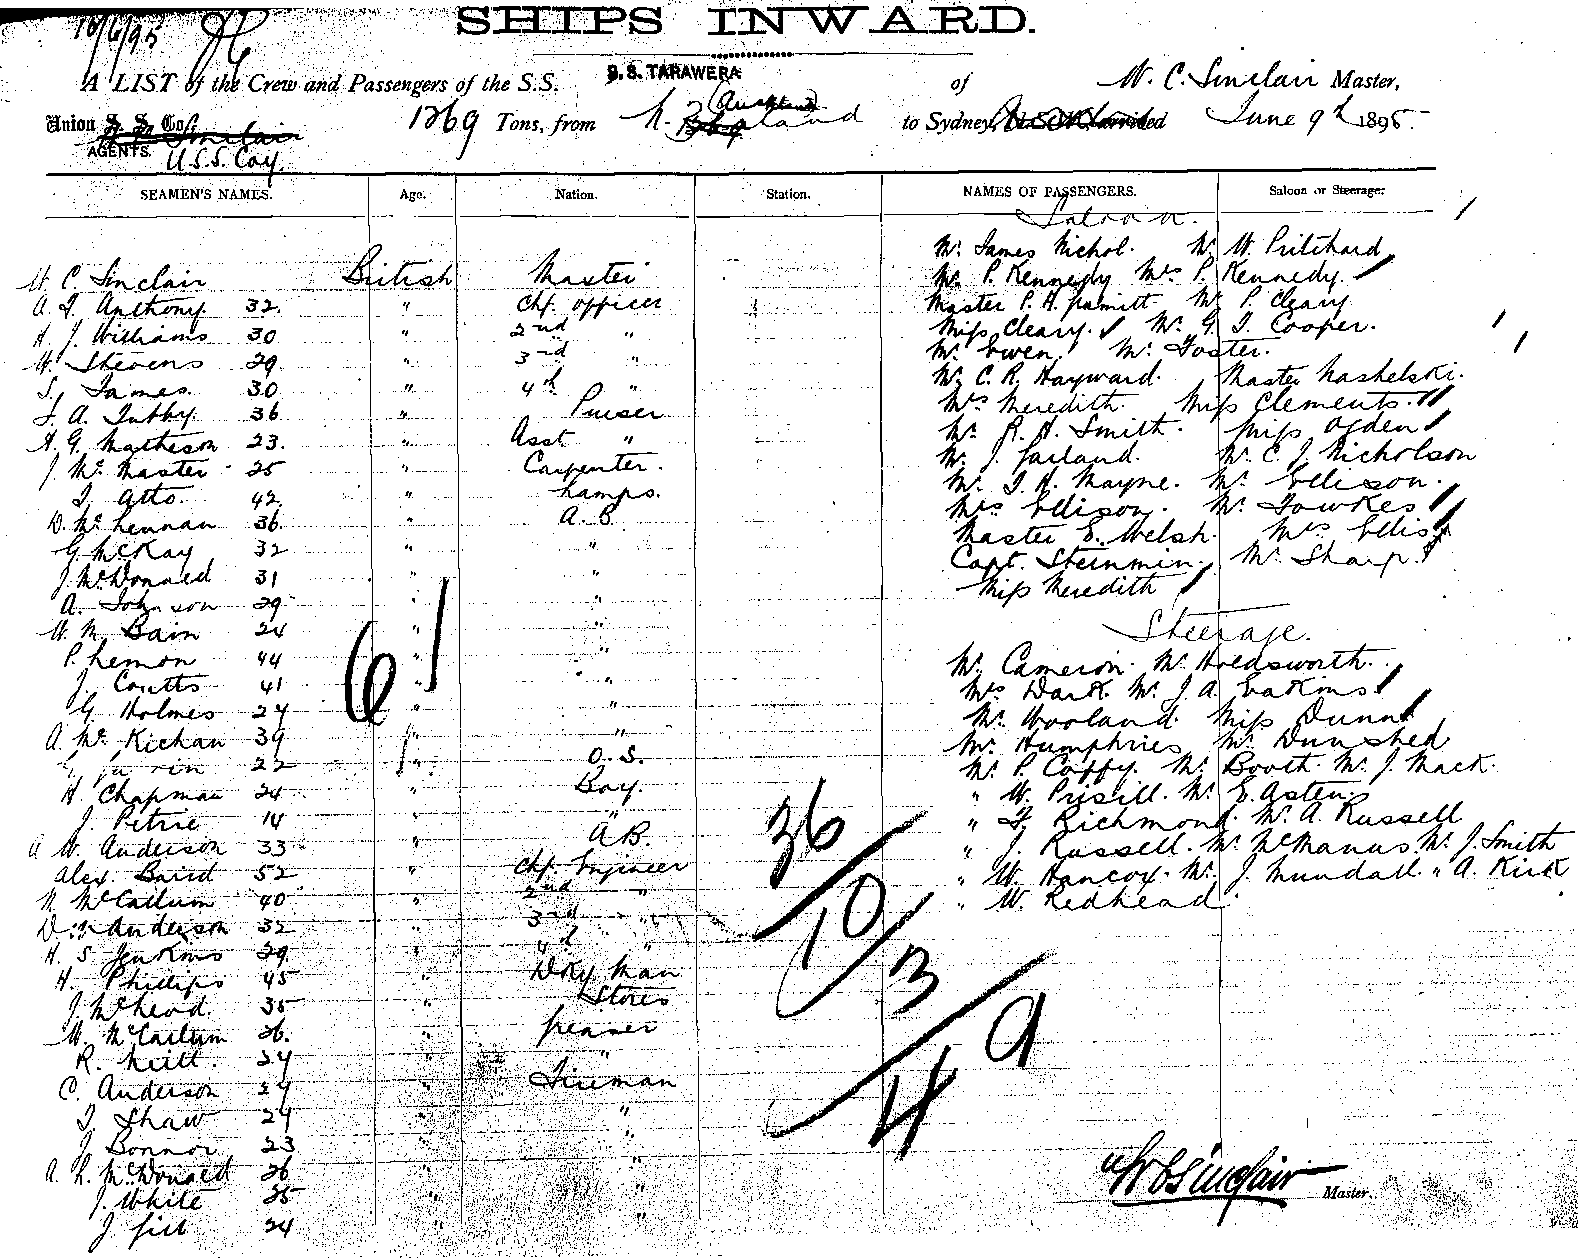 SHIPS INWARD.
10/6/95
A LIST of the Crew and Passengers of the S.S. S.S. TARAWERA of W. C. Sinclair Master,
Union S. S. Co. 1269 Tons, from N. Zealand (Auckland) to Sydney, June 9th 1895.
AGENTS. U.S.S. Coy.
SEAMEN'S NAMES. Age. Nation. Station. NAMES OF PASSENGERS. Saloon or Steerage.
Saloon.
W. C. Sinclair British Master
A. T. Anthony 32. " Chf. officer
H. J. Williams 30 " 2nd "
W. Stevens 29. " 3rd "
S. James. 30 " 4th "
36 " Purser
A. G. Matheson 23. " Asst "
J. McMaster 25 " Carpenter.
42 " Lamps.
D. McLennan 36. " A.B.
G. McKay 32 " "
J. McDonald 31 " "
A. Johnson 29 " "
W. M. Bain 24 " "
P. Lemon 44 " "
J. Coutts 41 " "
G. Holmes 24 " "
A. McKichan 39 " "
22 " O.S.
H. Chapman 24 " Boy.
J. Petrie 14 " "
A. W. Anderson 33 " A.B.
Alex. Baird 52 " Chf. Engineer
N. McCallum 40 " 2nd "
Anderson 32 " 3rd "
H. S. Jenkins 29. " 4th "
H. Phillips 45 " Dky Man
J. McLeod. 35 " Stores
W. McCallum 26. " Greaser
R. Neill. 24 " "
C. Anderson 24 " Fireman
T. Shaw 24 " "
J. Bonnor 23 " "
A. R. McDonald 26 " "
J. White 25 " "
24 " "
Mr. James Nichol. Mr. W. Pritchard
Mr. P. Kennedy Mrs P. Kennedy.
Master P. H. Mr. P. Cleary
Miss Cleary. Mr. G. T. Cooper.
Mr. Ewen Mr. Foster.
Mr. C. R. Hayward. Master Nashelski.
Mrs Meredith. Miss Clements.
Mr. R. H. Smith. Miss Ogden
Mr. J. Garland. Mr. C. J. Nicholson
Mr. T. H. Mayne. Mr. Ellison.
Mrs Ellison. Mr. Fowkes
Master E. Welsh. Mrs Ellis
Capt. Mr. Sharp.
Miss Meredith
Steerage.
Mr. Cameron. Mr. Holdsworth.
Mrs Dark. Mr. J. A. Eakins
Mr. Wooland. Miss Dunn
Mr. Humphries Mr. Dunshed
Mr. P. Coffy. Mr. Booth. Mr. J. Mack.
" W. Mr. E. Asten.
" F. Richmond. Mr. A. Russell
" J. Russell. Mr. McManus. Mr. J. Smith
" W. Hancox. Mr. J. Mundall. " A. Kirk
" W. Redhead.
61
36
10
3
49
W C Sinclair Master.